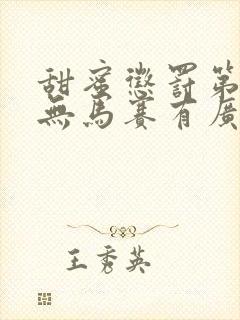 甜蜜懲罰第
無馬賽有廣
王秀英